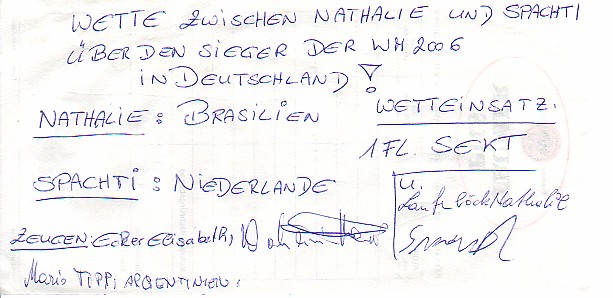 WETTE ZWISCHEN NATHALIE UND SPACHTI
ÜBER DEN SIEGER DER WM 2006
IN DEUTSCHLAND!
NATHALIE: BRASILIEN
WETTEINSATZ.
1 FL. SEKT
SPACHTI: NIEDERLANDE
u.
Nathalie
ZEUGEN: Ecker Elisabeth,
Mario TIPP: ARGENTINIEN!